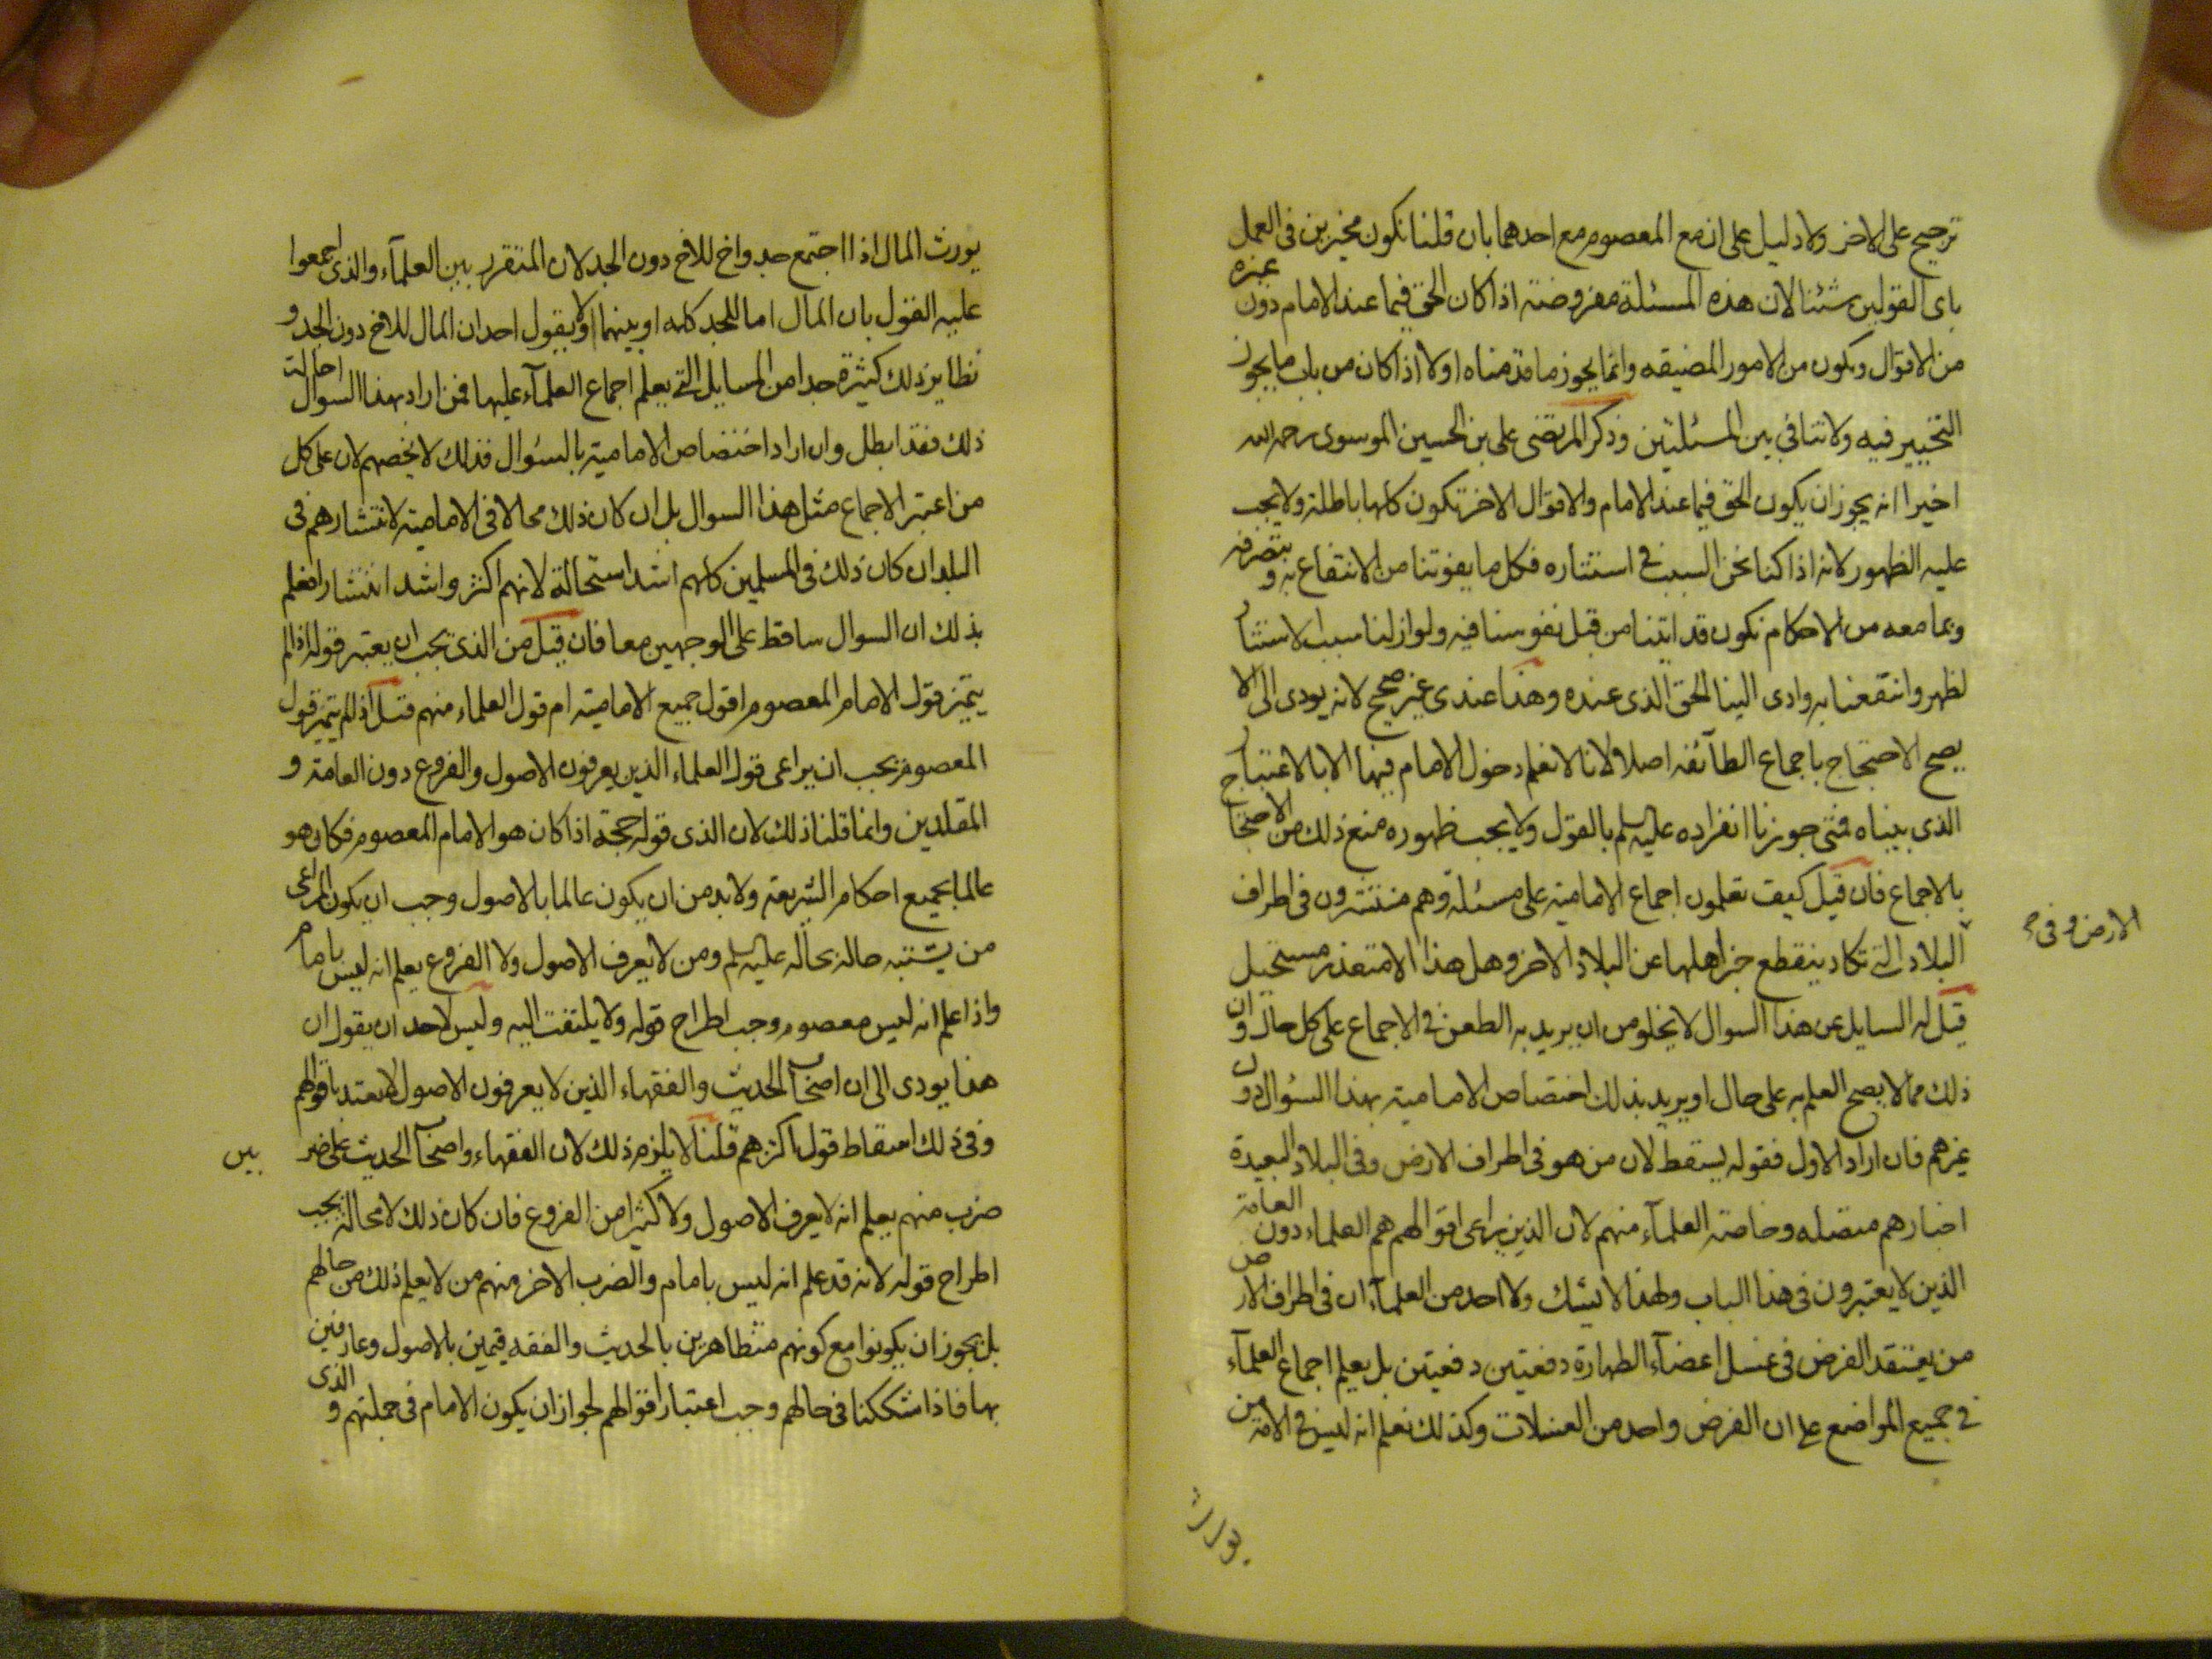 ترجيح على الاخر ولا دليل على ان مع المعصوم مع احدهما بان قلنا نكون مخيرين فى العمل
باى القولين شئنا لان هذه المسئلة مفروضة اذا كان الحق فيما عند الامام دون غيره
من الاقوال ويكون من الامور المضيقه وانما يجوز ما قدمناه اولا اذا كان من باب ما يجوز
التخيير فيه ولا تنافى بين المسئلتين وذكر المرتضى على بن الحسين الموسوى رحمه الله
اخيرا انه يجوز ان يكون الحق فيما عند الامام والاقوال الاخر تكون كلها باطلة ولا يجب
عليه الظهور لانه اذا كنا نحن السبب فى استتاره فكل ما يفوتنا من الانتفاع به وبتصرفه
وبما معه من الاحكام نكون قد اتينا من قبل نفوسنا فيه ولو ازلنا سبب الاستتار
لظهر وانتفعنا به وادى الينا الحق الذى عنده وهذا عندى غير صحيح لانه يودى الى الا
يصح الاحتجاج باجماع الطائفه اصلا لانا لا نعلم دخول الامام فيها الا بالاعتبار
الذى بيناه فمتى جوزنا انفراده عليه السلم بالقول ولا يجب ظهوره منع ذلك من الاحتجاج
بالاجماع فان قيل كيف تعلمون اجماع الامامية على مسئلة وهم منتشرون فى اطراف
الارض وفى
البلاد التى تكاد ينقطع خبر اهلها عن البلاد الاخر وهل هذا الا متعذر مستحيل
قيل له السايل عن هذا السوال لا يخلو من ان يريد به الطعن فى الاجماع على كل حال وان
ذلك مما لا يصح العلم به على حال او يريد بذلك اختصاص الامامية بهذا السؤال دون
غيرهم فان اراد الاول فقوله يسقط لان من هو فى اطراف الارض وفى البلاد البعيدة
اخبارهم متصله وخاصة العلمآء منهم لان الذين يراعى اقوالهم هم العلماء دون العامة
الذين لا يعتبرون فى هذا الباب ولهذا لا نشك ولا احد من العلمآء ان فى اطراف الارض
من يعتقد الفرض فى غسل اعضآء الطهارة دفعتين دفعتين بل يعلم اجماع العلمآء
فى جميع المواضع على ان الفرض واحد من الغسلات وكذلك نعلم انه ليس فى الامة من
يورث
يورث المال اذا اجتمع جد واخ للاخ دون الجد لان المتقرر بين العلمآء والذى اجمعوا
عليه القول بان المال اما للجد كله او بينهما ولا يقول احد ان المال للاخ دون الجد و
نظاير ذلك كثيرة جدا من المسايل التى يعلم اجماع العلمآء عليها فمن اراد بهذا السوال احالة
ذلك فقد ابطل وان اراد اختصاص الامامية بالسؤال فذلك لا يخصهم لان على كل
من اعتبر الاجماع مثل هذا السوال بل ان كان ذلك محالا فى الامامية لانتشارهم فى
البلدان كان ذلك فى المسلمين كلهم اشد استحالة لانهم اكثر واشد انتشارا فعلم
بذلك ان السوال ساقط على الوجهين معا فان قيل من الذى يجب ان يعتبر قوله اذا لم
يتميز قول الامام المعصوم اقول جميع الامامية ام قول العلماء منهم قيل اذا لم يتميز قول
المعصوم يجب ان يراعى قول العلماء الذين يعرفون الاصول والفروع دون العامة و
المقلدين وانما قلنا ذلك لان الذى قوله حجة اذا كان هو الامام المعصوم فكان هو
عالما بجميع احكام الشريعة ولا بد من ان يكون عالما بالاصول وجب ان يكون المراعى
من يشتبه حاله بحاله عليه السلم ومن لا يعرف الاصول ولا الفروع يعلم انه ليس بامام
واذا علم انه ليس معصوم وجب اطراح قوله ولا يلتفت اليه وليس لاحد ان يقول ان
هذا يودى الى ان اصحاب الحديث والفقهاء الذين لا يعرفون الاصول لا يعتد باقوالهم
وفى ذلك اسقاط قول اكثرهم قلنا لا يلزم ذلك لان الفقهاء واصحاب الحديث على ضر
بين
ضرب منهم يعلم انه لا يعرف الاصول ولا كثيرا من الفروع فان كان ذلك لا محالة يجب
اطراح قوله لانه قد علم انه ليس بامام والضرب الاخر منهم من لا يعلم ذلك من حالهم
بل يجوز ان يكونوا مع كونهم متظاهرين بالحديث والفقه قيمين بالاصول وعارفين
بها فاذا شككنا فى حالهم وجب اعتبار اقوالهم لجواز ان يكون الامام فى جملتهم و الذى